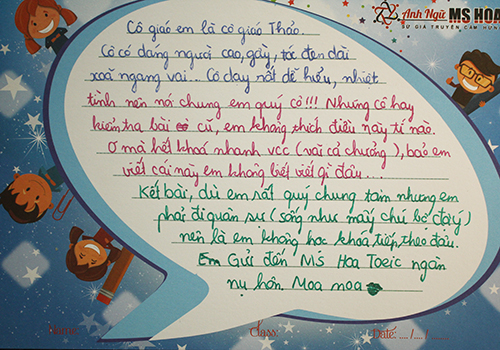 Anh Ngữ MS HOA
SỨ GIẢ TRUYỀN CẢM HỨNG
Cô giáo em là cô giáo Thảo.
Cô có dáng người cao, gầy, tóc đen dài
xoã ngang vai.. Cô dạy rất dễ hiểu, nhiệt
tình nên nói chung em quý cô!!! Nhưng cô hay
kiểm tra bài cũ, em không thích điều này tí nào.
Ơ mà hết khoá nhanh vcc (vãi cả chưởng), bảo em
viết cái này em không biết viết gì đâu...
Kết bài, dù em rất quý chung tâm nhưng em
phải đi quân sự (sống như mấy chú bộ đội ý)
nên là em không học khoá tiếp theo đâu.
Em Gửi đến Ms Hoa Toeic ngàn
nụ hôn. Moa moa
Name: Class: Date: .... /.... /......